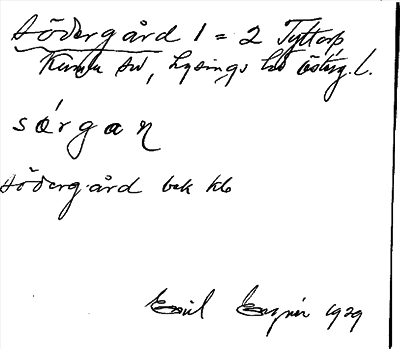 Södergård 1 = 2 Tyttorp
Kumla sn, Lysings hd Österg. L.
sórgaɳ
Södergård bek kb
Emil 1929